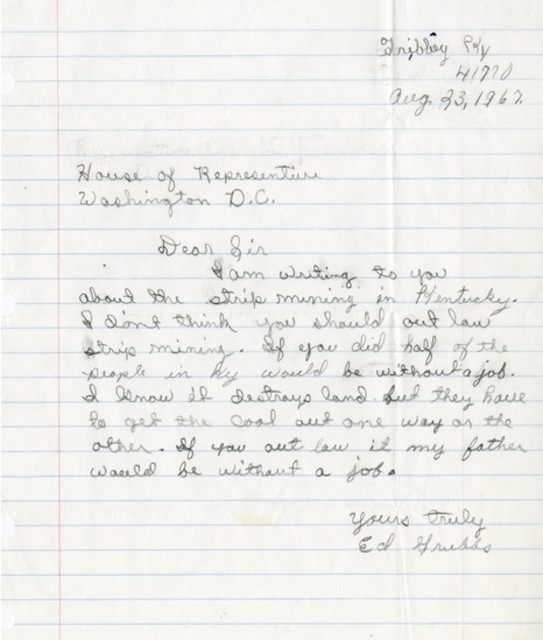 Tribbey Ky
41770
Aug. 23, 1967.
House of Representive
Washington D.C.
Dear Sir
I am writing to you
about the strip mining in Kentucky.
I don't think you should out law
strip mining. If you did half of the
people in ky would be without a job.
I know it destroys land but they have
to get the coal out one way or the
other. If you out law it my father
would be without a job.
Yours truly
Ed Grubbs